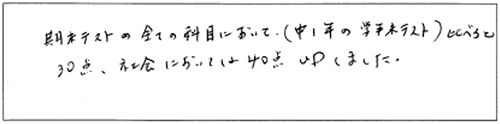 期末テストの全ての科目において、(中1年の学年末テスト)と比べると
30点、社会においては40点UPしました。